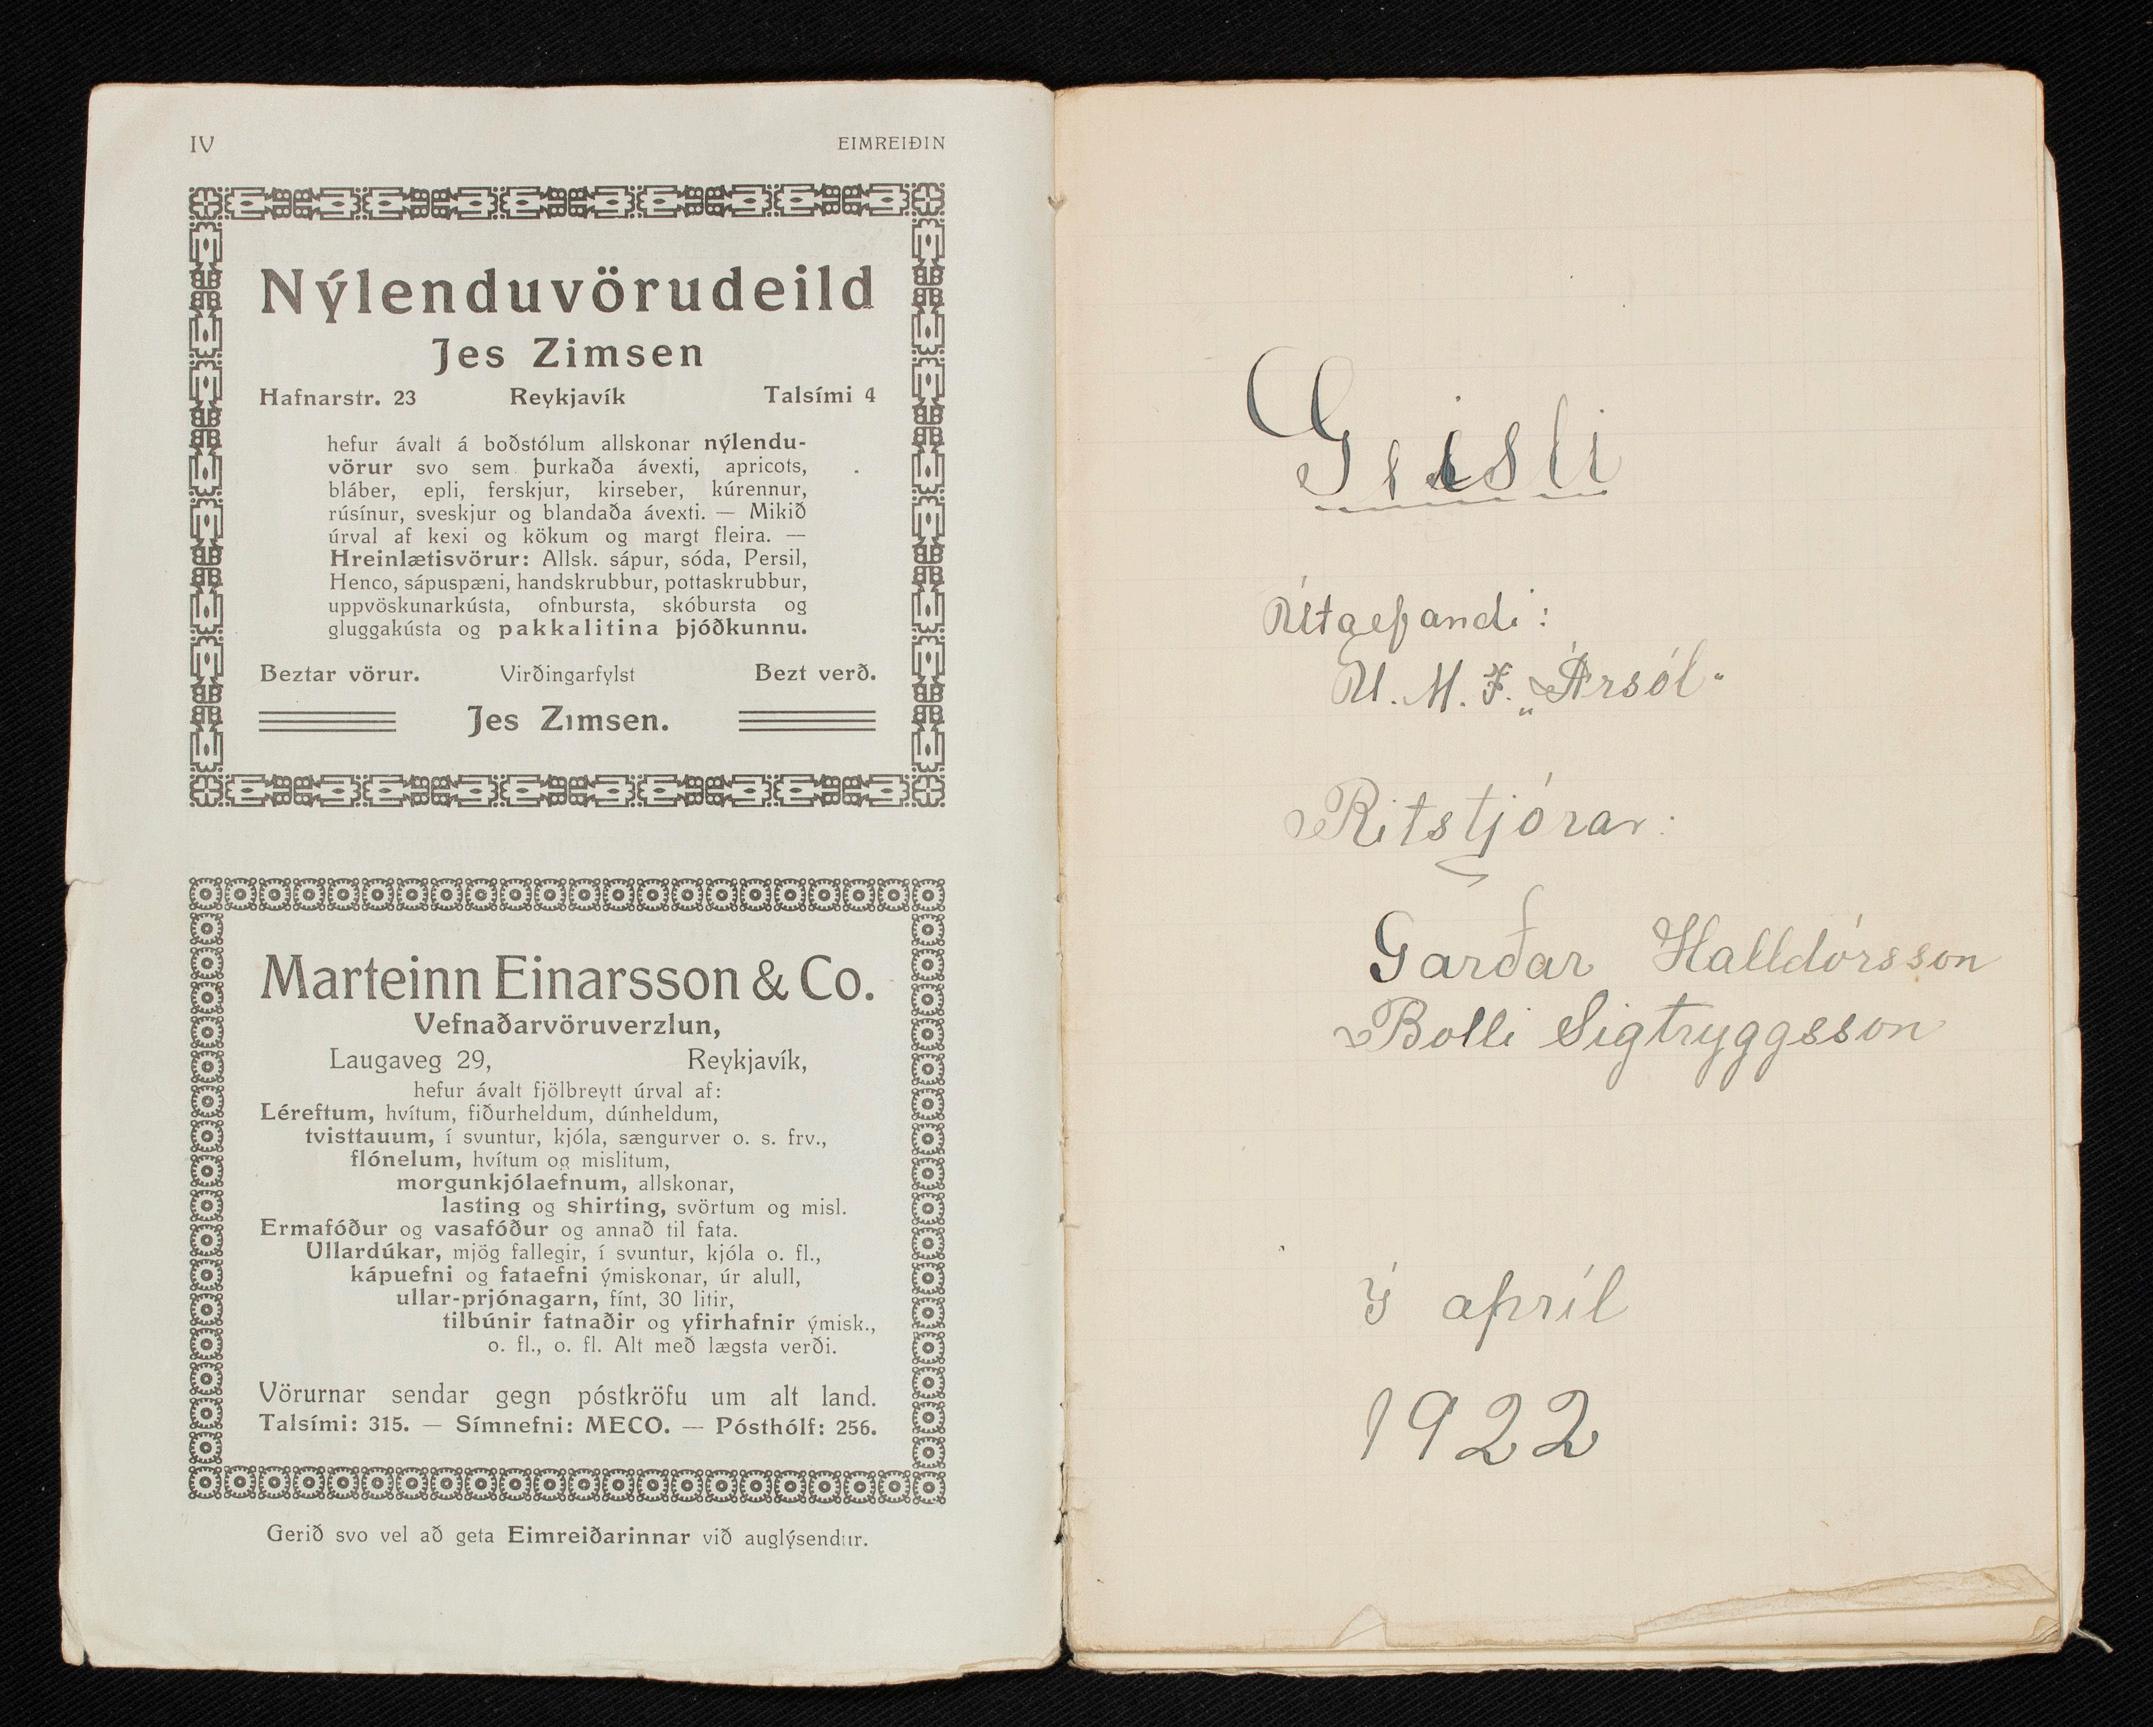 IV
EIMREIÐIN
Nýlenduvörudeild
Jes Zimsen
Hafnarstr. 23 Reykjavík Talsími 4
hefur ávalt á boðstólum allskonar nýlendu-
vörur svo sem þurkaða ávexti, apricots,
bláber, epli, ferskjur, kirseber, kúrennur,
rúsínur, sveskjur og blandaða ávexti. — Mikið
úrval af kexi og kökum og margt fleira. —
Hreinlætisvörur: Allsk. sápur, sóda, Persil,
Henco, sápuspæni, handskrubbur, pottaskrubbur,
uppvöskunarkústa, ofnbursta, skóbursta og
gluggakústa og pakkalitina þjóðkunnu.
Beztar vörur. Virðingarfylst Bezt verð.
Jes Zimsen.
Marteinn Einarsson & Co.
Vefnaðarvöruverzlun,
Laugaveg 29, Reykjavík,
hefur ávalt fjölbreytt úrval af:
Léreftum, hvítum, fiðurheldum, dúnheldum,
tvisttauum, í svuntur, kjóla, sængurver o. s. frv.,
flónelum, hvítum og mislitum,
morgunkjólaefnum, allskonar,
lasting og shirting, svörtum og misl.
Ermafóður og vasafóður og annað til fata.
Ullardúkar, mjög fallegir, í svuntur, kjóla o. fl.,
kápuefni og fataefni ýmiskonar, úr alull,
ullar-prjónagarn, fínt, 30 litir,
tilbúnir fatnaðir og yfirhafnir ýmisk.,
o. fl., o. fl. Alt með lægsta verði.
Vörurnar sendar gegn póstkröfu um alt land.
Talsími: 315. — Símnefni: MECO. — Pósthólf: 256.
Gerið svo vel að geta Eimreiðarinnar við auglýsendur.
Geisli
Útgefandi:
U. M. F. „Ársól"
Ritstjórar:
Garðar Halldórsson
Bolli Sigtryggsson
Í apríl
1922